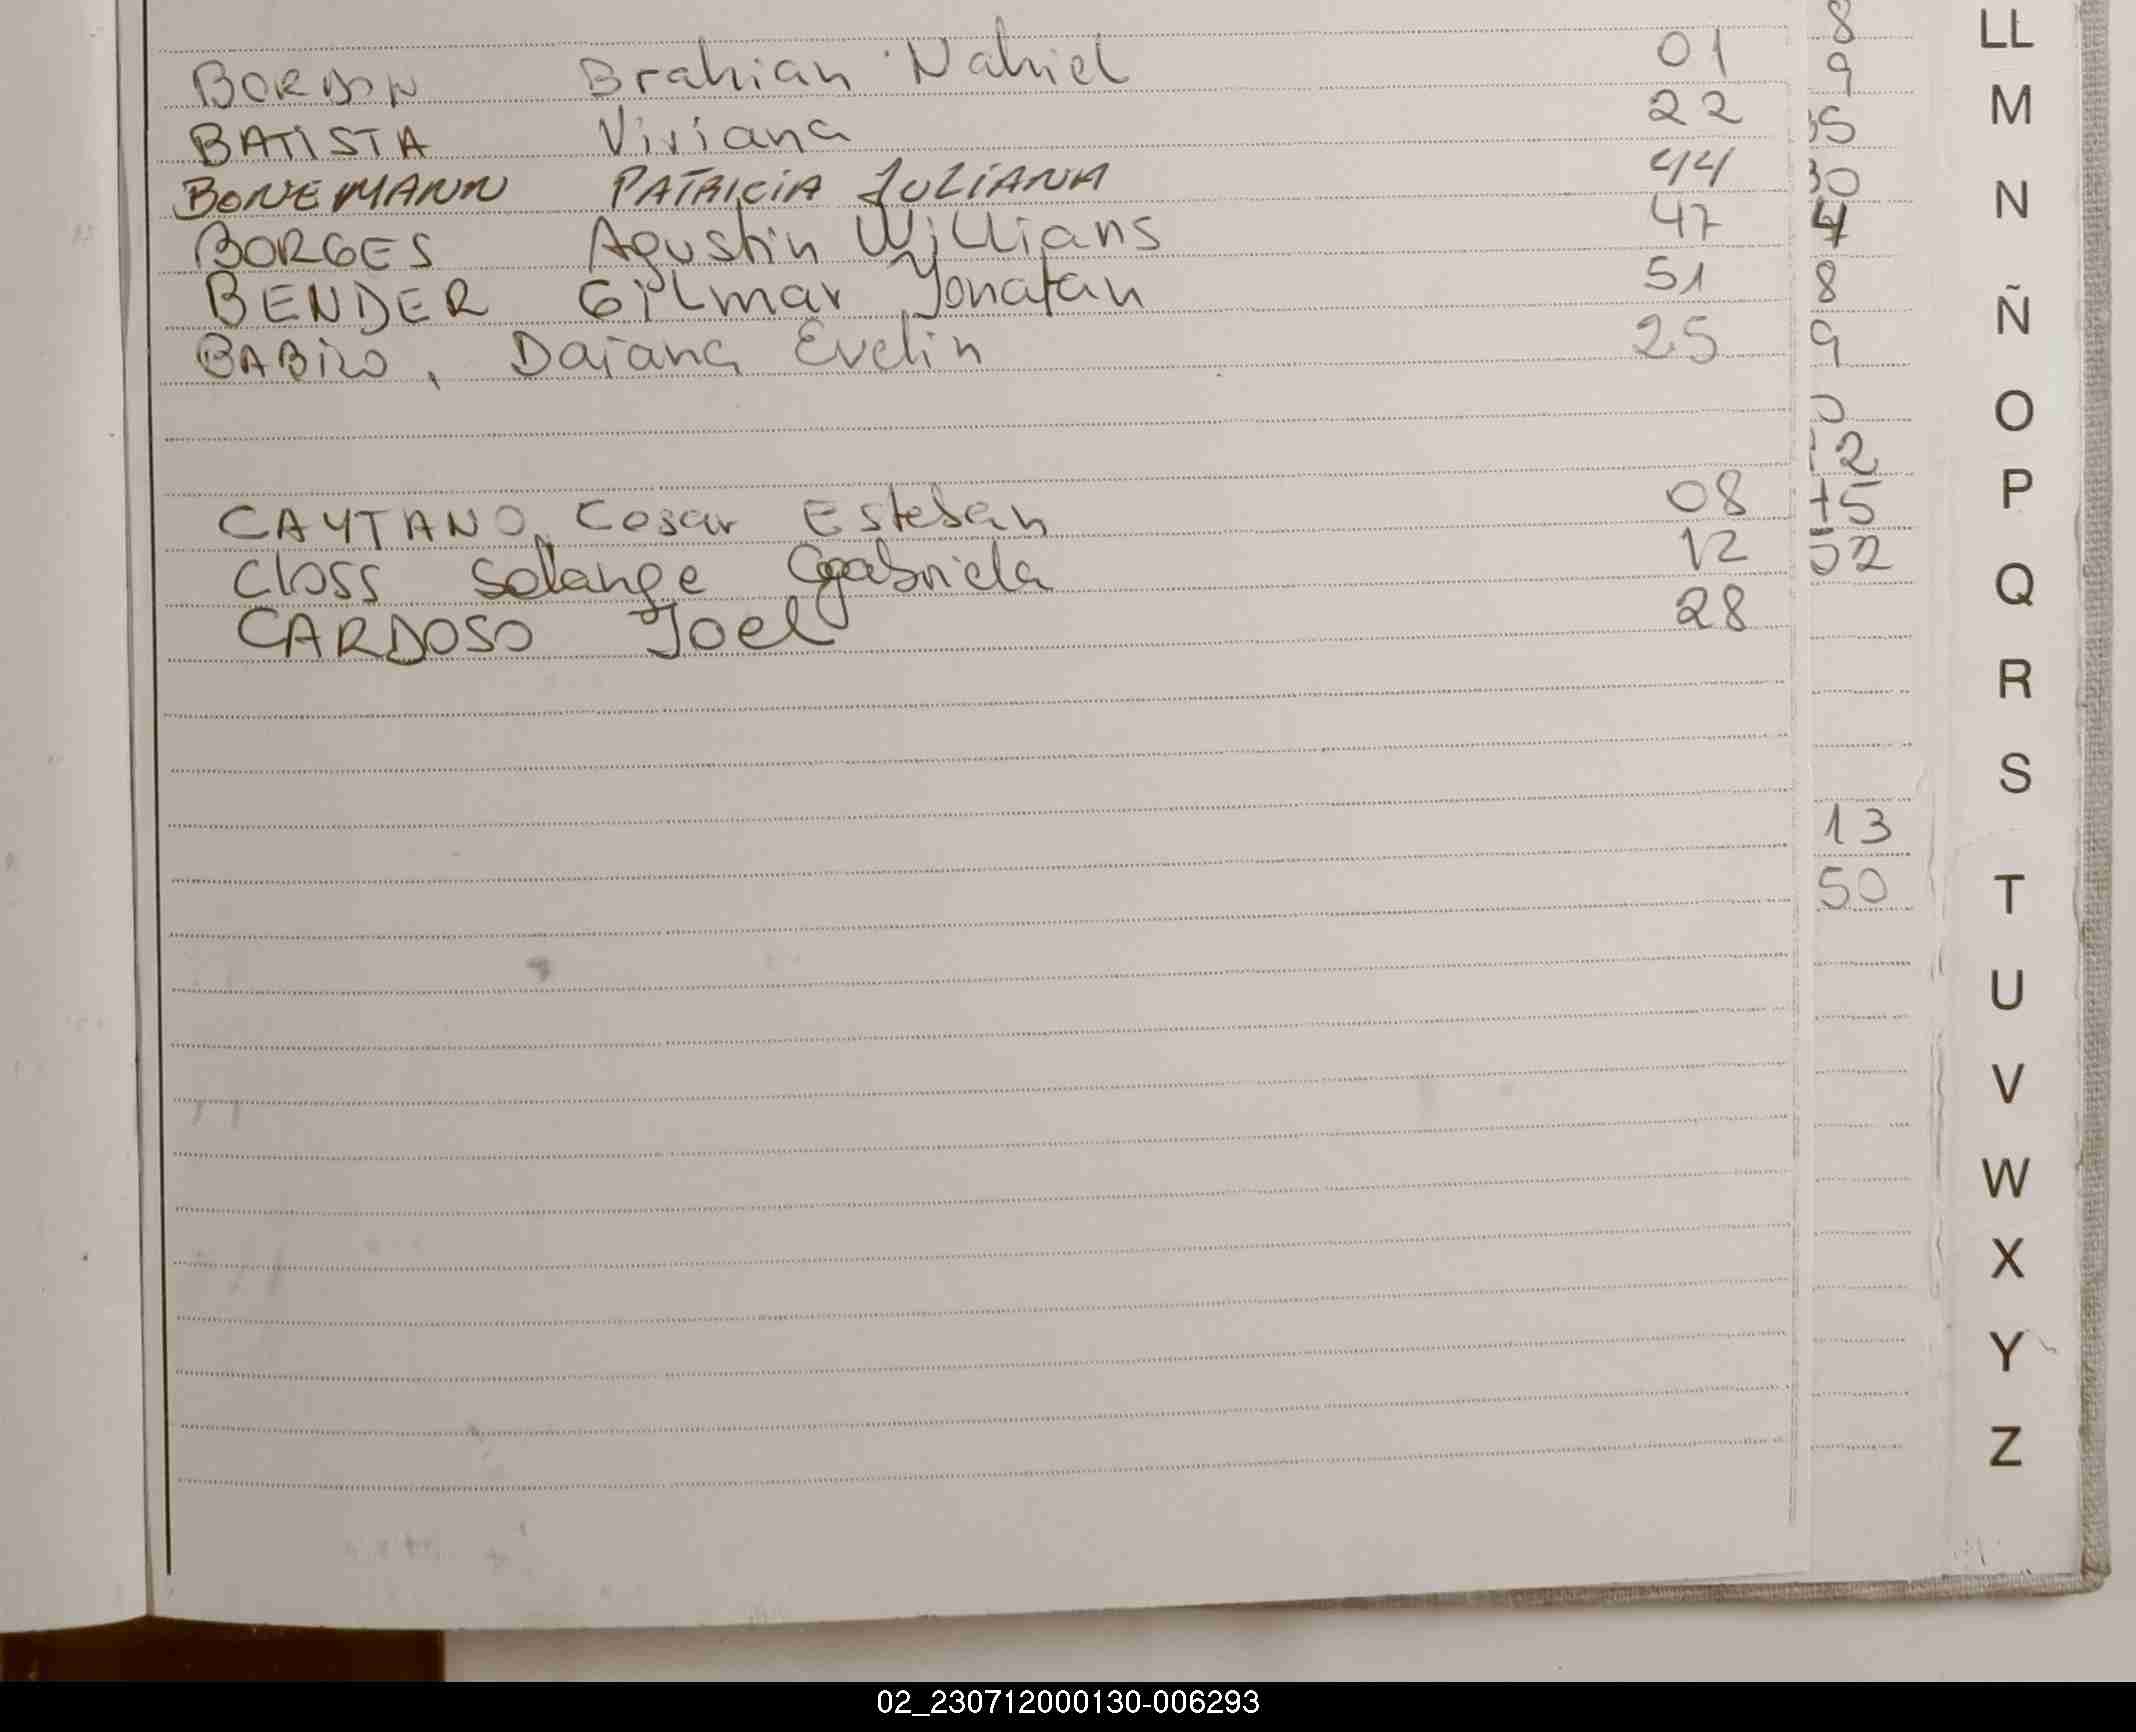 BORDON Brahian Nahiel 01
BATISTA Viviana 22
BONNEMANN PATRICIA JULIANA 44
BORGES Agustin Willians 47
BENDER Gilmar Yonatan 51
Daiana Evelin 25
CAYTANO, Cesar Esteban 08
Closs Solange Gabriela 12
CARDOSO Joel 28
8
9
30
4
8
9
0
2
52
13
50
LL
M
N
Ñ
O
P
Q
R
S
T
U
V
W
X
Y
Z
02_230712000130-006293